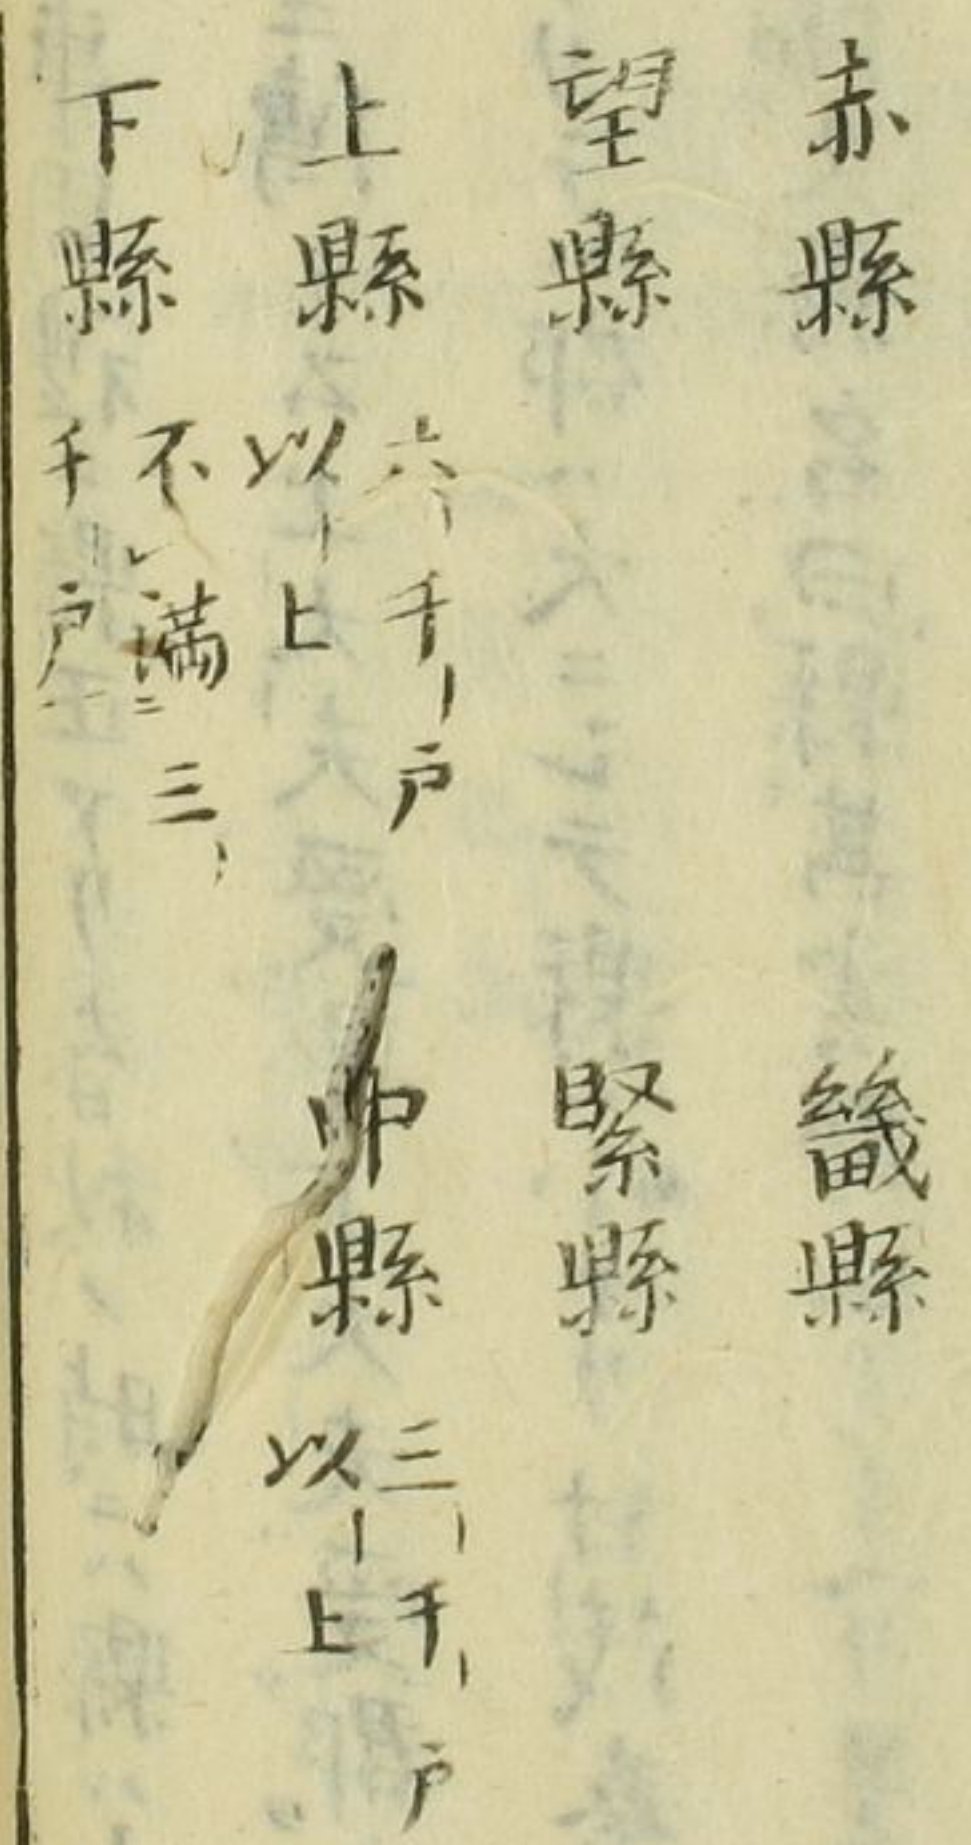 赤縣　畿縣
望縣　緊縣
上縣　六千戸以上　中縣　三千戸以上
下縣　不満三千戸